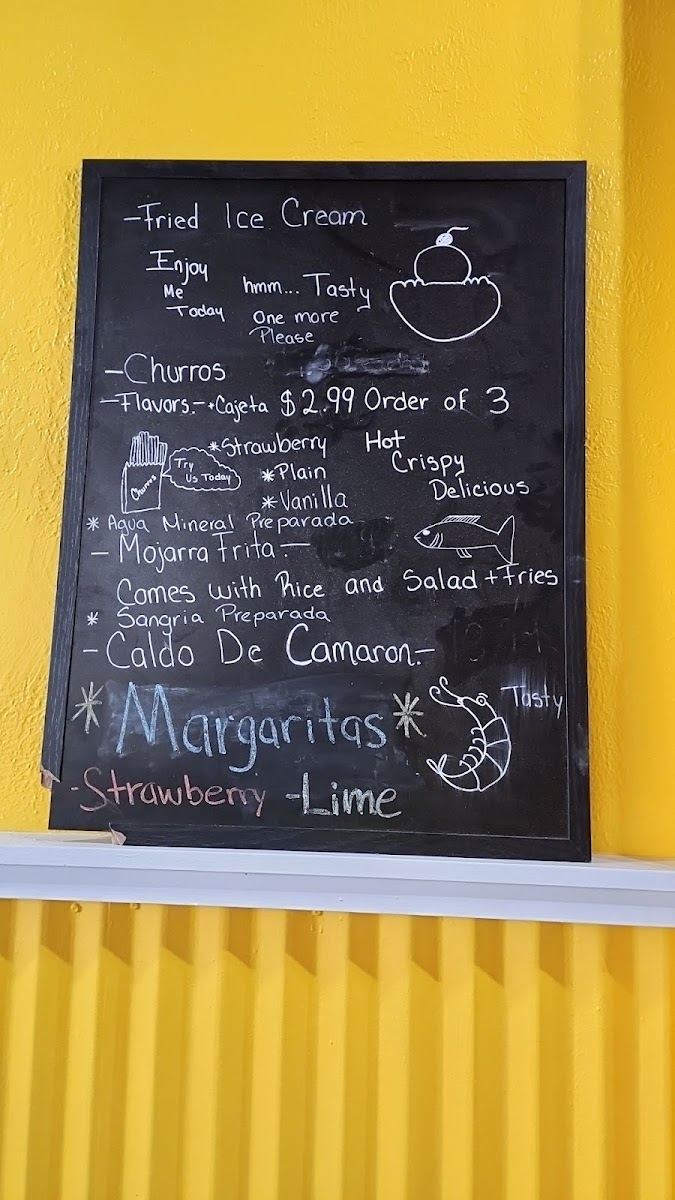 -Fried Ice Cream
Enjoy
Me
Today
hmm... Tasty
One more
Please
-Churros
-Flavors.- *Cajeta $2.99 Order of 3
*Strawberry
*Plain
*Vanilla
Hot
Crispy
Delicious
Churros
Try
Us Today
* Agua Mineral Preparada
- Mojarra Frita.-
Comes with Rice and Salad + Fries
* Sangria Preparada
-Caldo De Camaron.-
Tasty
*Margaritas*
-Strawberry -Lime